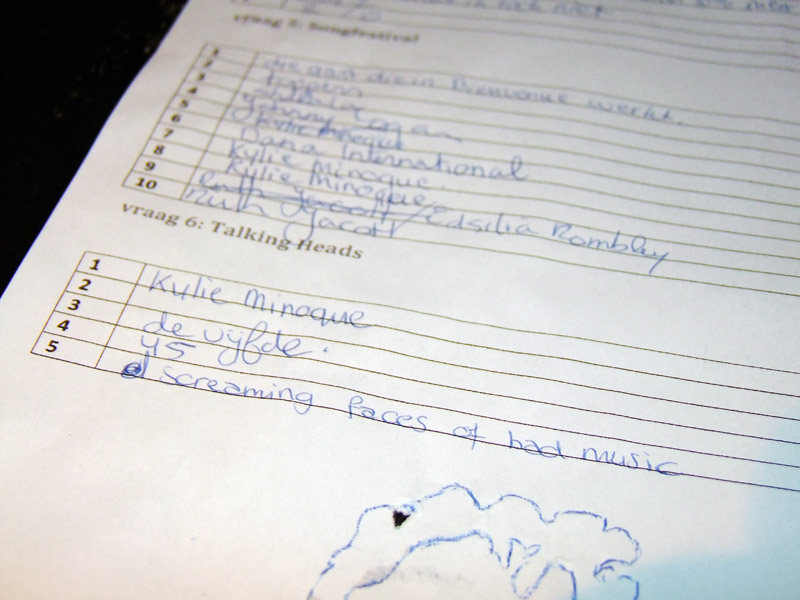 vraag 5: Songfestival
1 die gast die in Bienvenue werkt.
2 toppers
3
4 Johnny Logan
5 Kylie Minoque
6 Dana International
7 Kylie Minoque.
8 Kylie Minoque.
9 Ruth Jacott / Edsilia Rombley
10 Ruth Jacott
vraag 6: Talking Heads
1 Kylie Minoque
2
3 de vijfde.
4 45
5 screaming faces of bad music